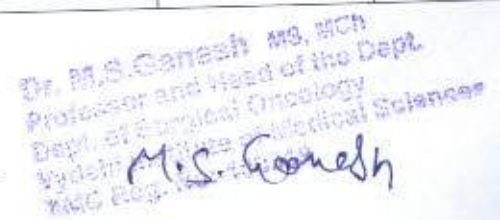 Dr. M.S.Ganesh MS, MCh
Professor and Head of the Dept.
Dept. of Surgical Oncology
Vydehi Institute of Medical Sciences
KMC Reg.
M.S. Ganesh